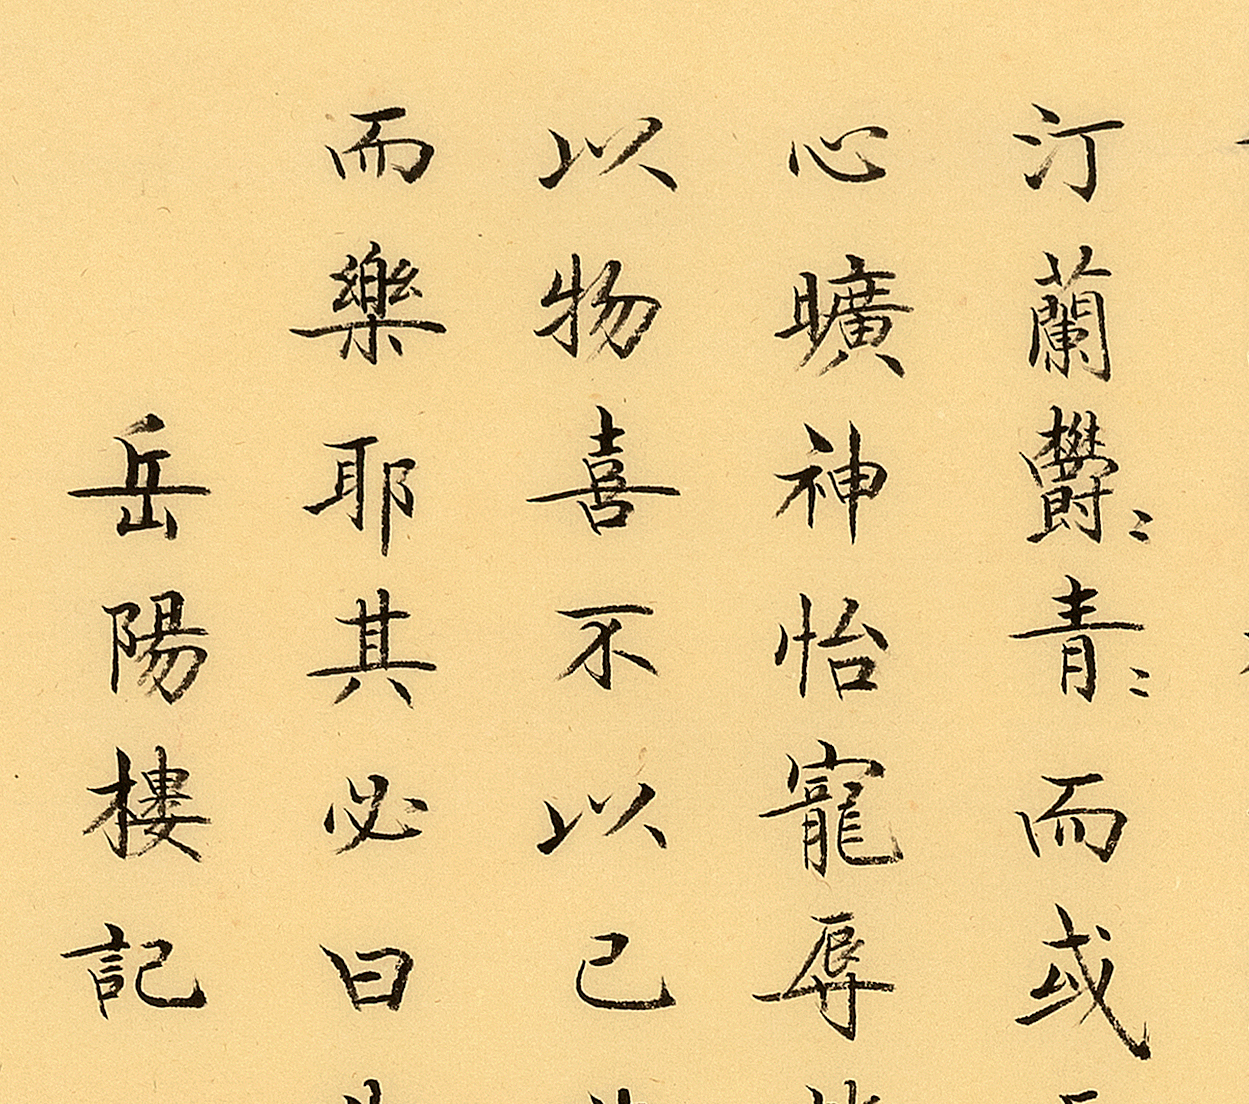 汀蘭鬱〻青〻而或
心曠神怡寵辱
以物喜不以己
而樂耶其必曰
岳陽樓記